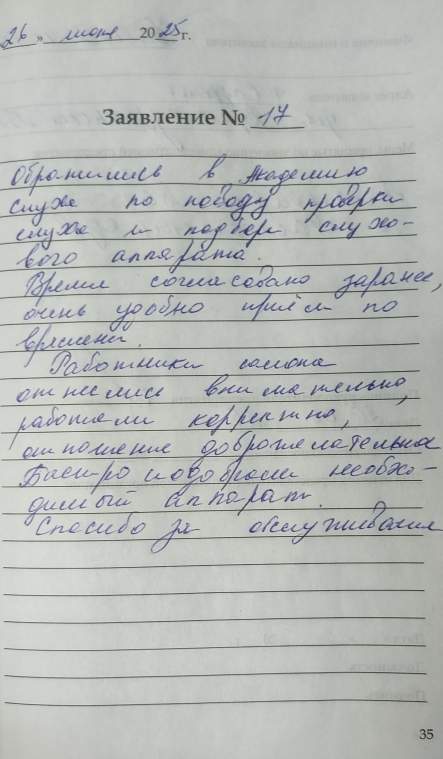 26 " июня 2025 г.
Заявление № 17
Обратились в Академию
слуха по поводу проверки
слуха и подбора слухо-
вого аппарата.
Время согласовано заранее,
очень удобно приём по
времени.
Работники салона
отнеслись внимательно,
работали корректно,
отношение доброжелательное
Быстро подобрали необхо-
димый аппарат.
Спасибо за обслуживание
35